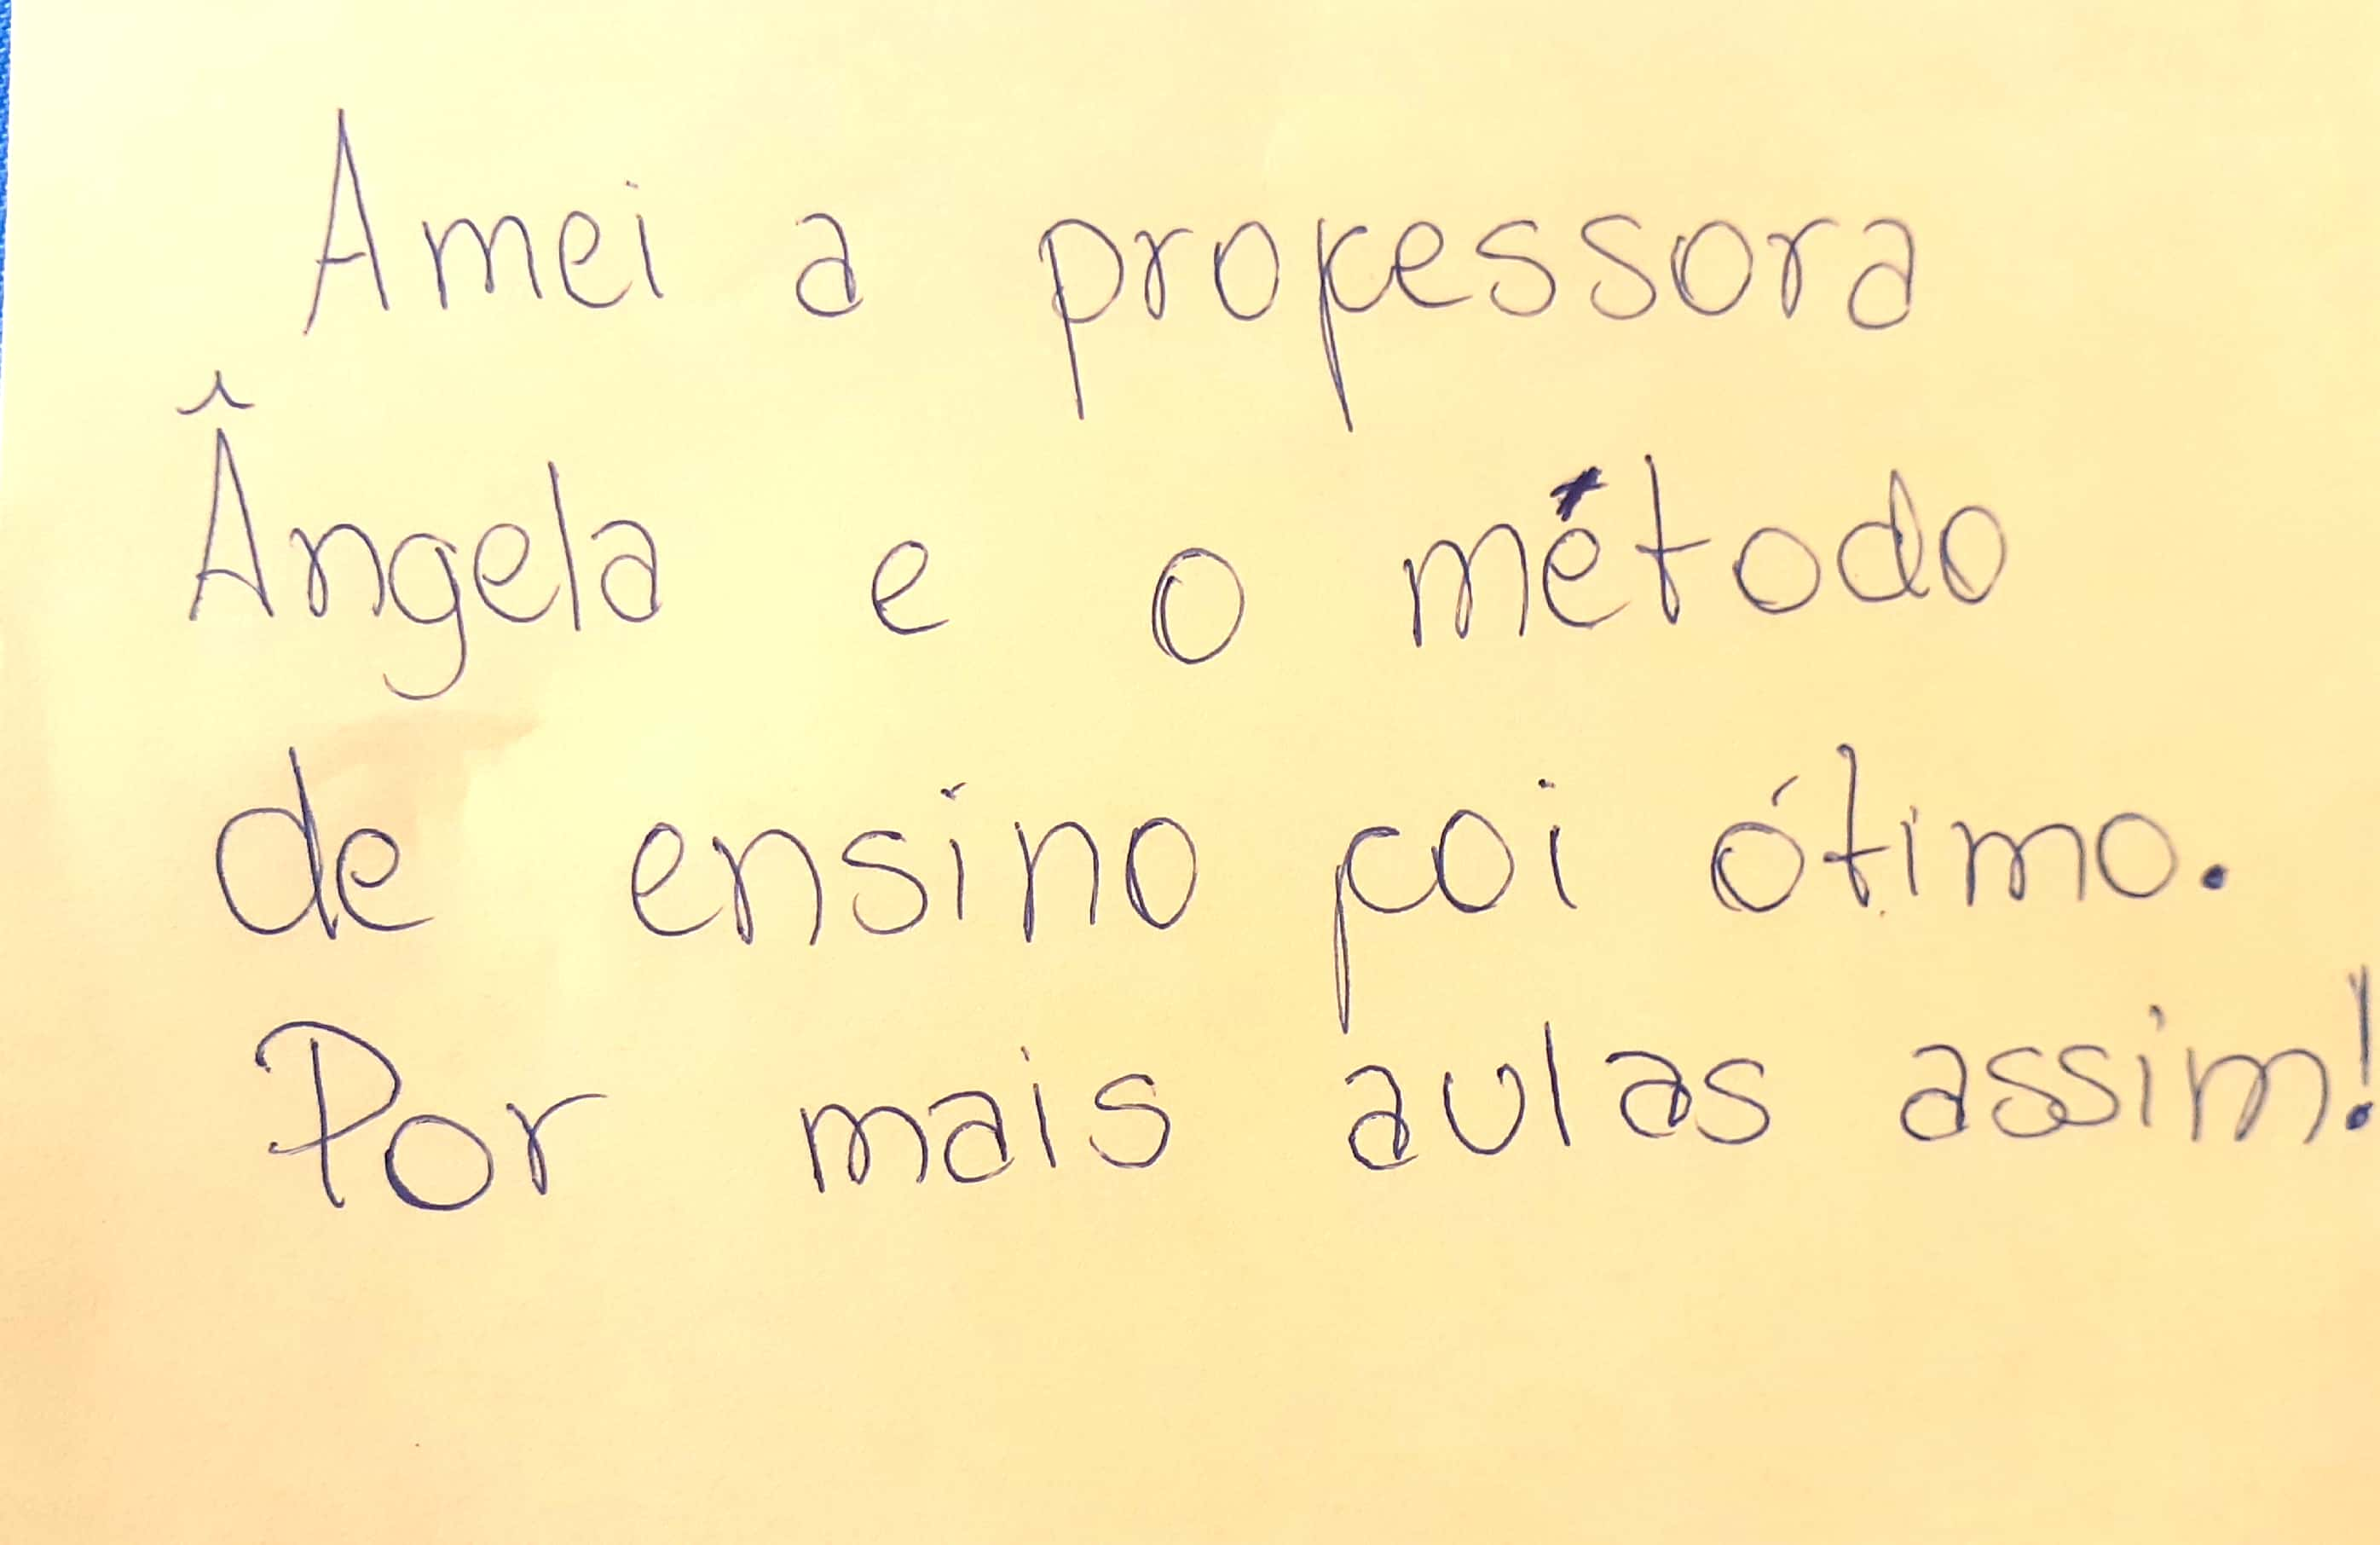 Amei a professora
Ângela e o método
de ensino foi ótimo.
Por mais aulas assim!